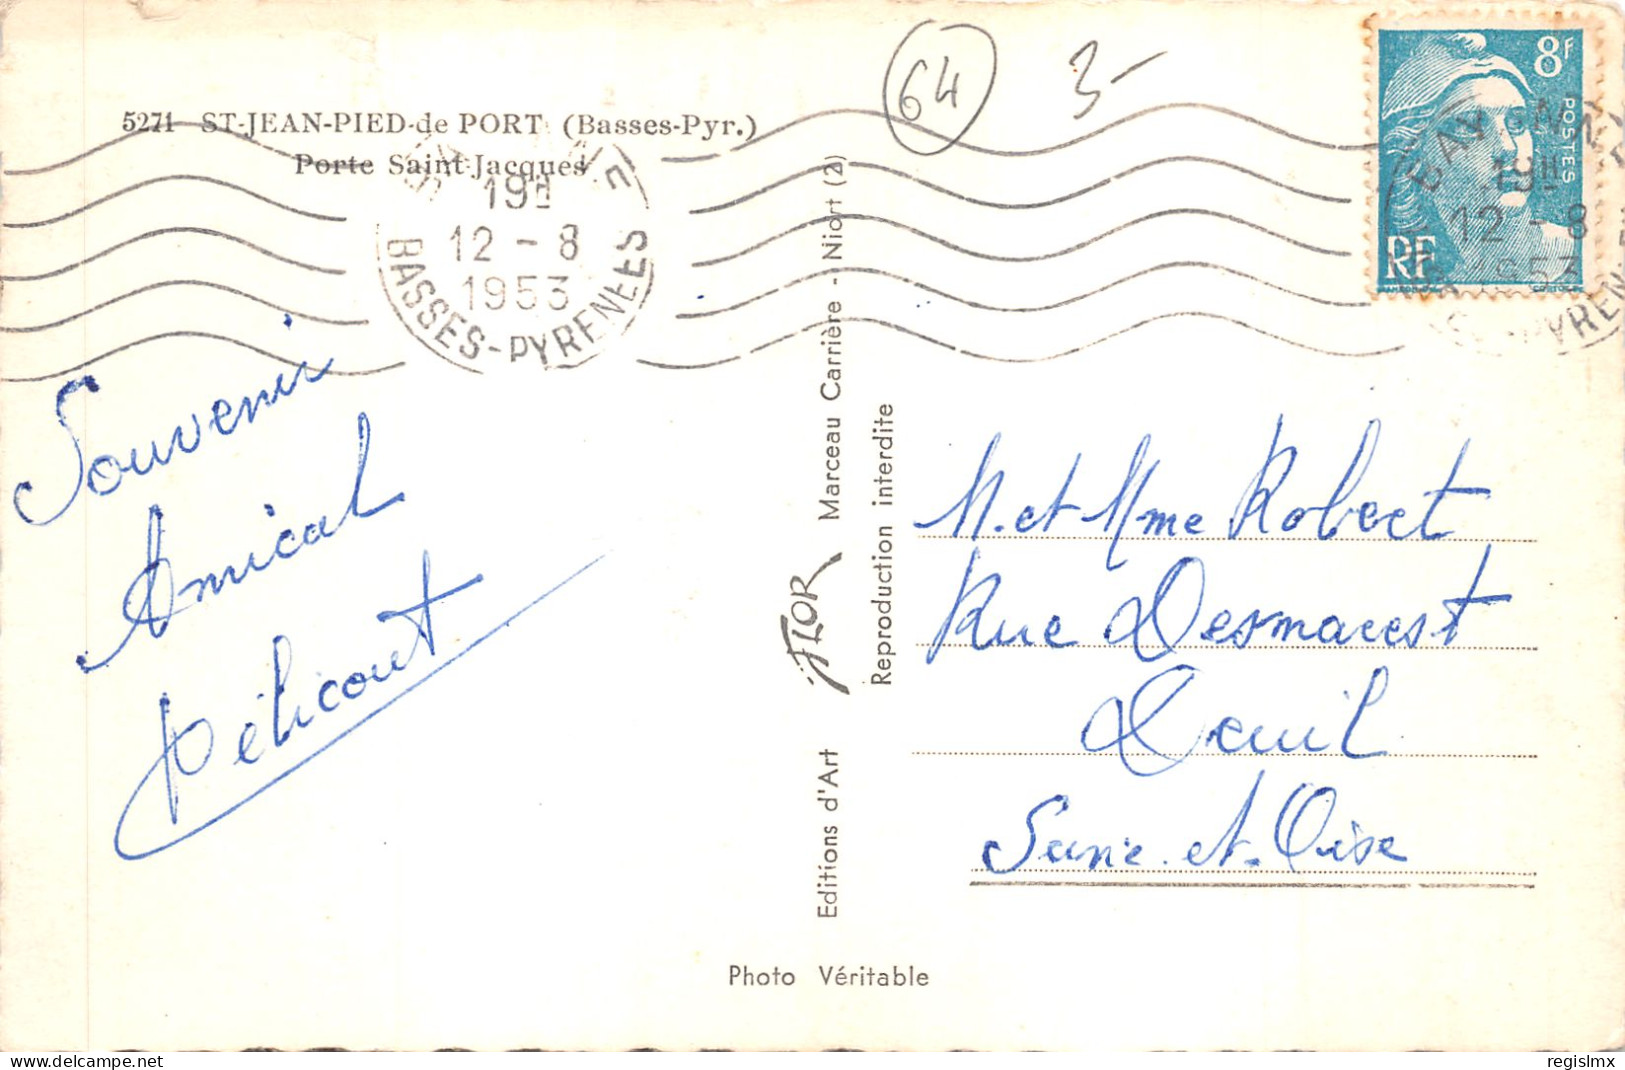 5271 ST-JEAN-PIED-de PORT (Basses-Pyr.)
Porte Saint-Jacques
64
3-
8F
POSTES
RF
19H
12 - 8
1953
BASSES-PYRENEES
BAYONNE
19H
12 - 8
1953
Souvenir
Amical
Editions d'Art FLOR Marceau Carrière - Niort (2)
Reproduction interdite
M. et Mme Robert
Rue Desmarest
Deuil
Seine-et-Oise
Photo Véritable
regislmx